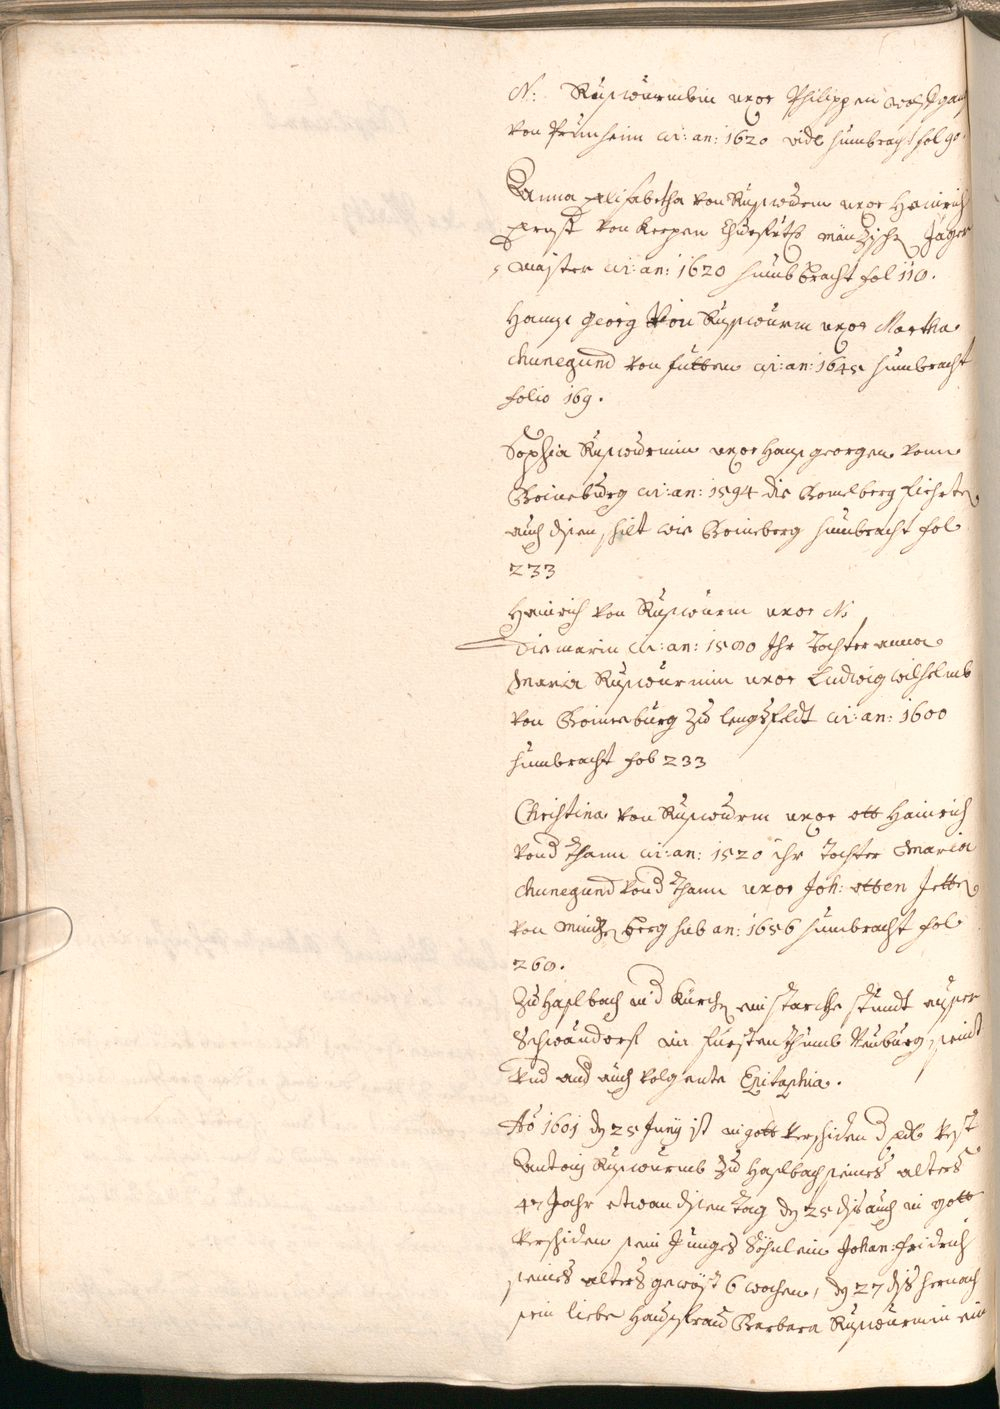 N: Rußwurmbin uxor Philippen wolfgang
von Prunheim ci: an: 1620 vide humbracht fol 90.
Anna Elisabetha von Rußwurm uxor Heinrich
Ernst von Kerpen Churfrtl mäntzischen Jäger
maister ci: an: 1620 humbbracht fol 110.
Hannß Georg Von Rußwurm uxor Martha
Chunegund von hutten ci: an: 1645 humbracht
folio 169.
Sophia Rußwurmin uxor Hanß georgen von
Boineburg ci: an: 1594 die Bomelberg fiehrten
auch disen schilt wie Boineberg humbracht fol
233
Heinrich von Rußwurm uxor N:
Diemarin ci: an: 1580 Ihr Tochter anna
Maria Rußwurmin uxor Ludwig wilhelmb
von Boineburg zu lengsfeldt ci: an: 1600
humbracht fol 233
Christina von Rußwurm uxor ott Hainrich
von d Thann ci: an: 1520 ihr Tochter Maria
Chunegund von d Thann uxor Joh: otten
von Minchberg sub an: 1656 humbracht fol
260.
Zu Haselbach in d Kürchen ein starckhe stundt ausser
Schwandorf im Fürstenthumb Neuburg seind
und auch volgente Epitaphia.
Ao 1601 den 25 Junij ist in gott verschiden d Edl vest
Antonj Rußwurmb zu Haselbach seines alters
47 Jahr etwan disen Tag den 25 dis auch in gott
verschiden sein Junges Söhnlein Johan: Fridrich
seines alters gewest 6 wochen, den 27 dis hernach
sein liebe Hausfrau Barbara Rußwurmin ein